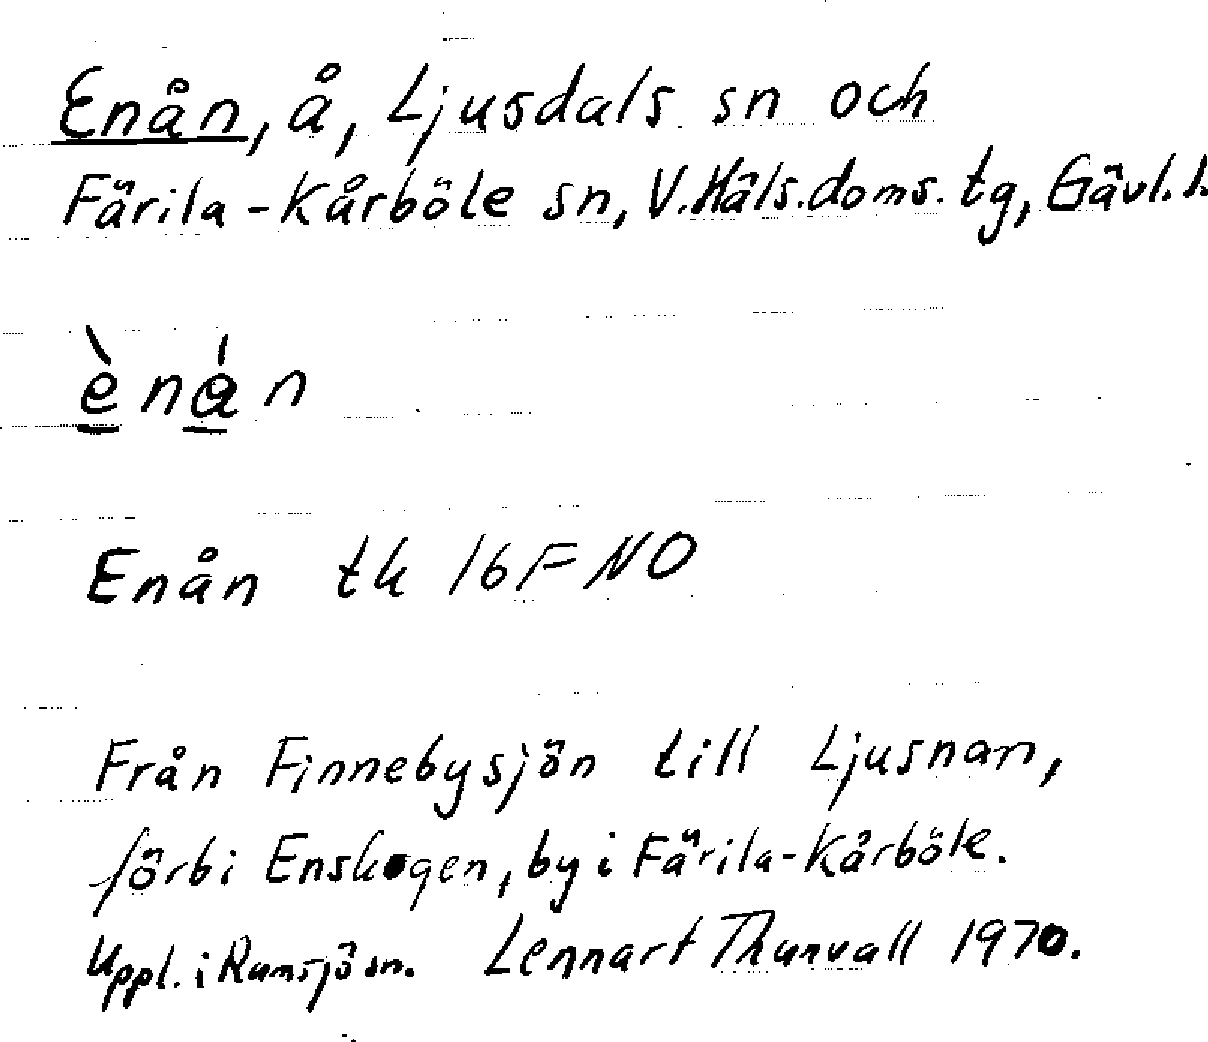 Enån, å, Ljusdals sn och
Färila-Kårböle sn, V.Häls.doms.tg, Gävl.l.
ènán
Enån tk 16F NO
Från Finnebysjön till Ljusnan,
förbi Enskogen, by i Färila-Kårböle.
Uppl. i Ramsjö sn. Lennart Thunvall 1970.